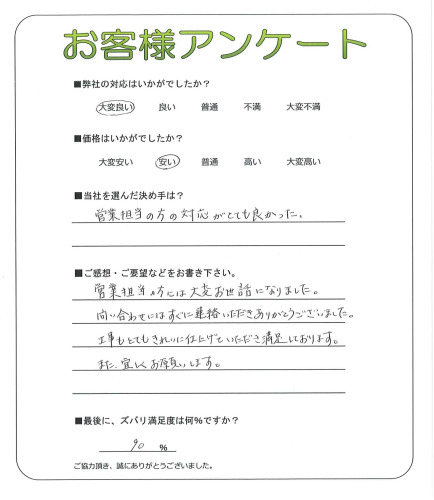 お客様アンケート
■弊社の対応はいかがでしたか？
大変良い 良い 普通 不満 大変不満
■価格はいかがでしたか？
大変安い 安い 普通 高い 大変高い
■当社を選んだ決め手は？
営業担当の方の対応がとても良かった。
■ご感想・ご要望などをお書き下さい。
営業担当の方には大変お世話になりました。
問い合わせにはすぐに連絡いただきありがとうございました。
工事もとてもきれいに仕上げていただき満足しております。
また、宜しくお願いします。
■最後に、ズバリ満足度は何％ですか？
90 ％
ご協力頂き、誠にありがとうございました。